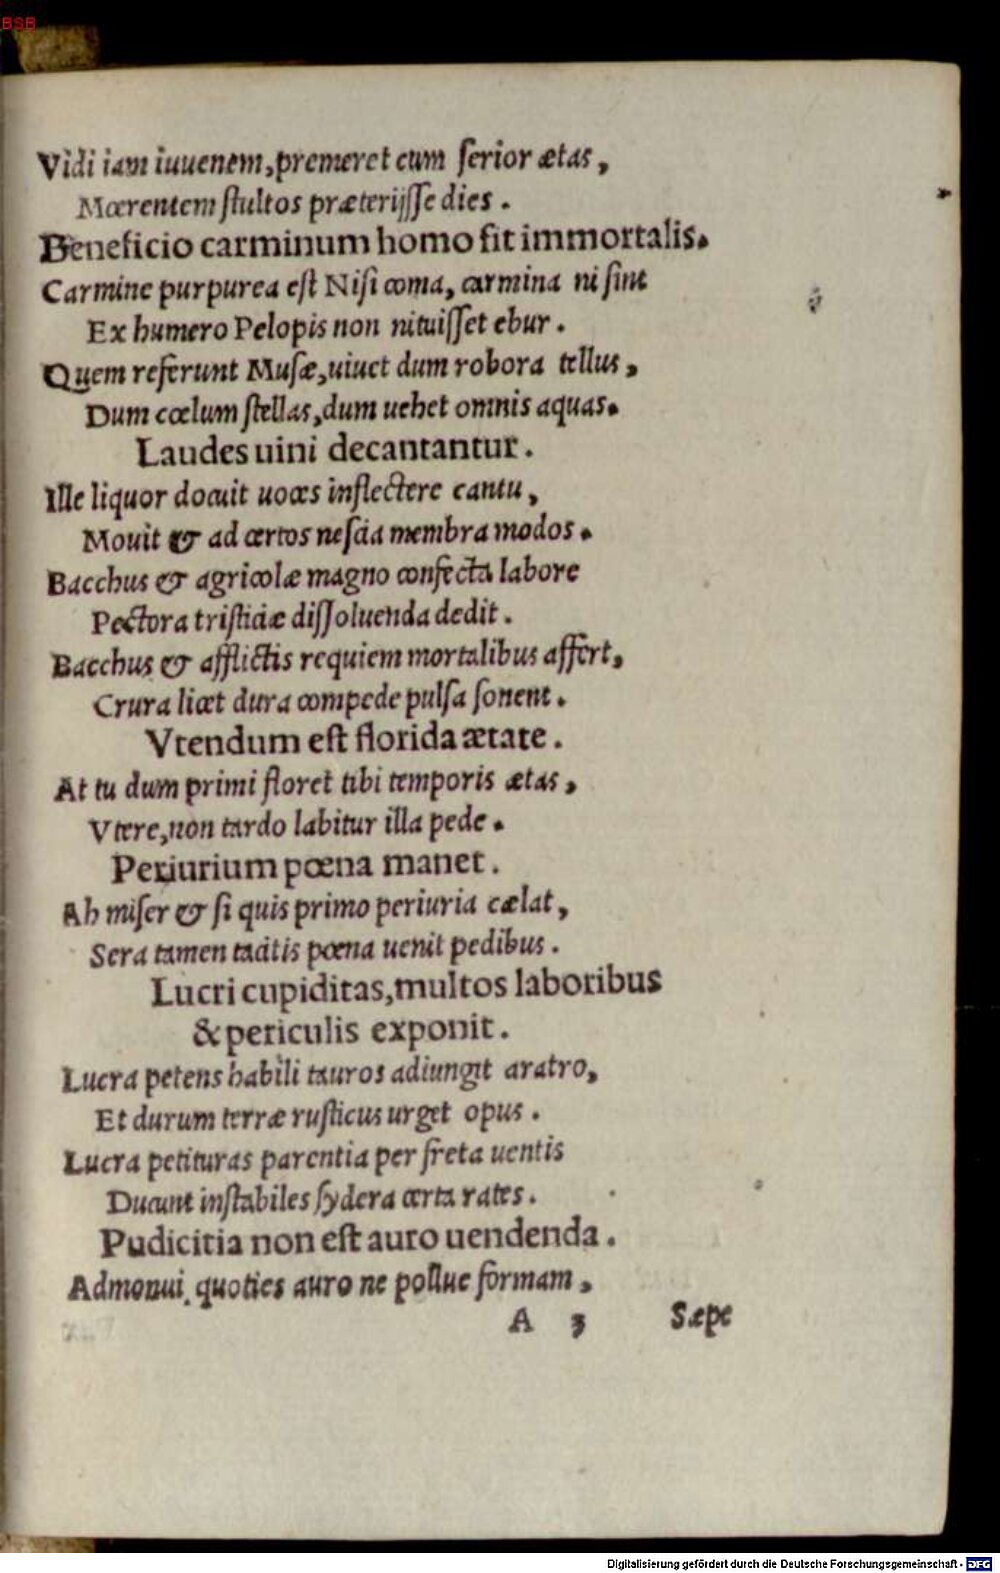 BSB
Vidi iam iuuenem, premeret cum ſerior ætas,
Mœrentem ſtultos præterijſſe dies.
Beneficio carminum homo fit immortalis.
Carmine purpurea eſt Niſi coma, carmina ni ſint
Ex humero Pelopis non nituiſſet ebur.
Quem referunt Muſæ, uiuet dum robora tellus,
Dum cœlum ſtellas, dum uehet omnis aquas.
Laudes uini decantantur.
Ille liquor docuit uoces inflectere cantu,
Mouit & ad certos neſcia membra modos.
Bacchus & agricolæ magno confecta labore
Pectora triſticiæ diſſoluenda dedit.
Bacchus & afflictis requiem mortalibus affert,
Crura licet dura compede pulſa ſonent.
Vtendum eſt florida ætate.
At tu dum primi floret tibi temporis ætas,
Vtere, non tardo labitur illa pede.
Periurium pœna manet.
Ah miſer & ſi quis primo periuria cælat,
Sera tamen tacitis pœna uenit pedibus.
Lucri cupiditas, multos laboribus
& periculis exponit.
Lucra petens habili tauros adiungit aratro,
Et durum terræ ruſticus urget opus.
Lucra petituras parentia per freta uentis
Ducunt inſtabiles ſydera certa rates.
Pudicitia non eſt auro uendenda.
Admonui quoties auro ne pollue formam,
A 3 Sæpe
Digitalisierung gefördert durch die Deutsche Forschungsgemeinschaft - DFG